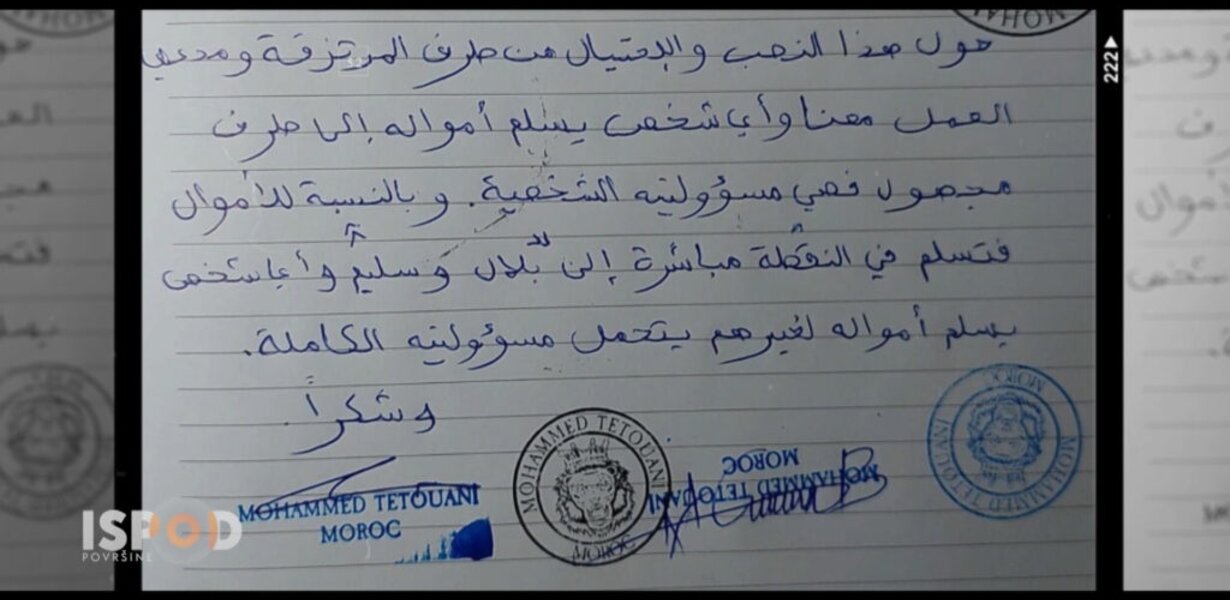 حول هذا النصب والإحتيال من طرف المرتزقة ومدعي
العمل معنا وأي شخص يسلم أمواله إلى طرف
مجهول فهي مسؤوليته الشخصية. وبالنسبة للأموال
فتسلم في النقطة مباشرة إلى بلال وسليم وأي شخص
يسلم أمواله لغيرهم يتحمل مسؤوليته الكاملة.
وشكراً
MOHAMMED TETOUANI
MOROC
MOHAMMED TETOUANI
MOROC
MOHAMMED TETOUANI
MOROC
MOHAMMED TETOUANI
MOROC
222
ISPOD
POVRŠINE